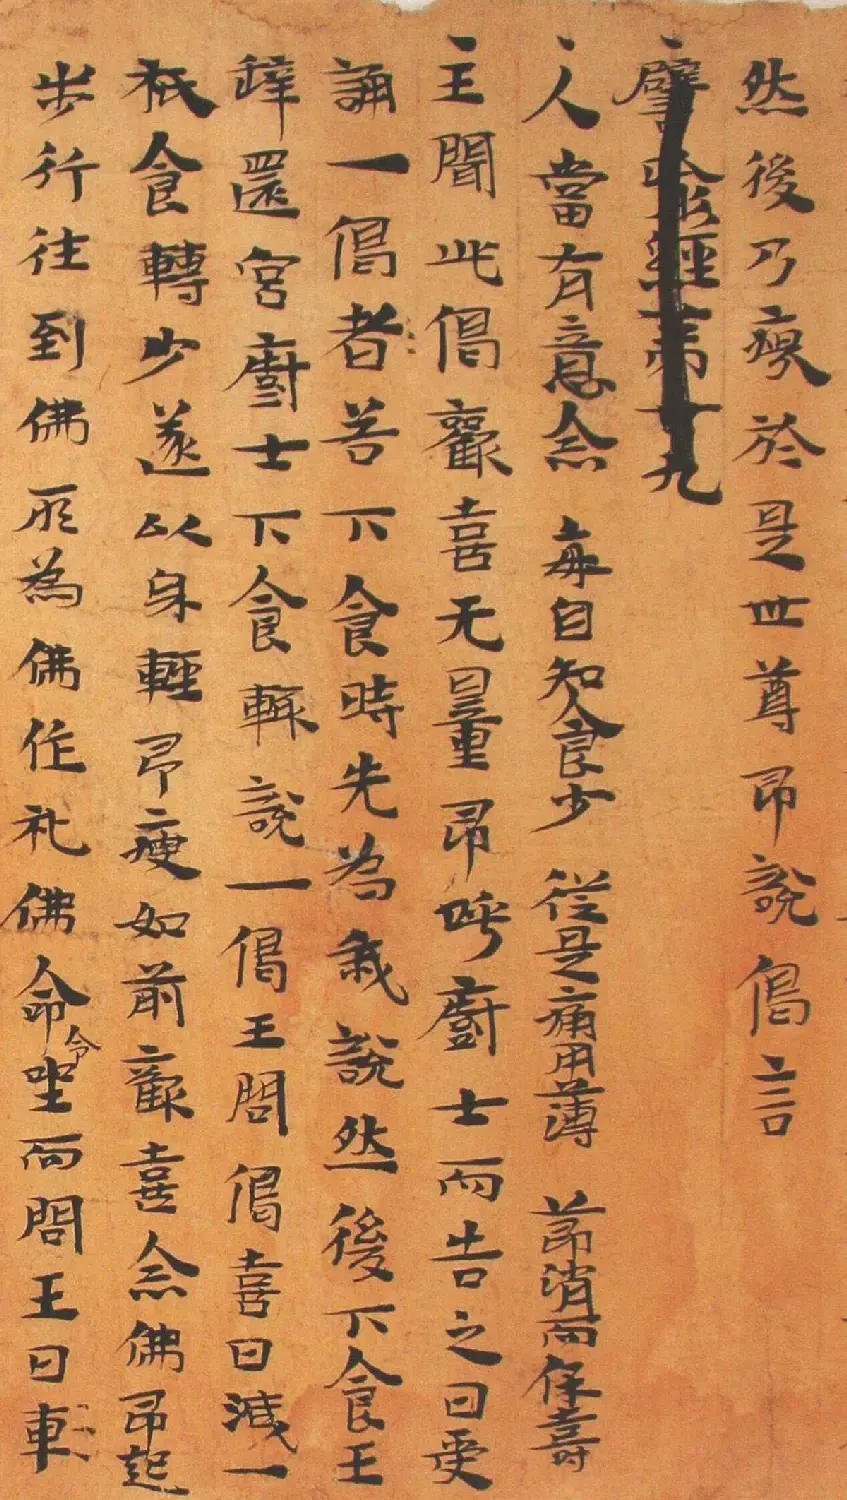 然後乃瘳於是世尊即說偈言
譬喻經第廿九
人當有意念 每自知食少 從是痛用薄 節消而保壽
王聞此偈歡喜无量即呼廚士而告之曰受
誦一偈者若下食時先為我說然後下食王
辞還宮廚士下食輒說一偈王問偈喜日減一
秖食轉少遂以身輕即瘦如前歡喜念佛即起
步行往到佛所為佛作礼佛命令坐而問王曰車